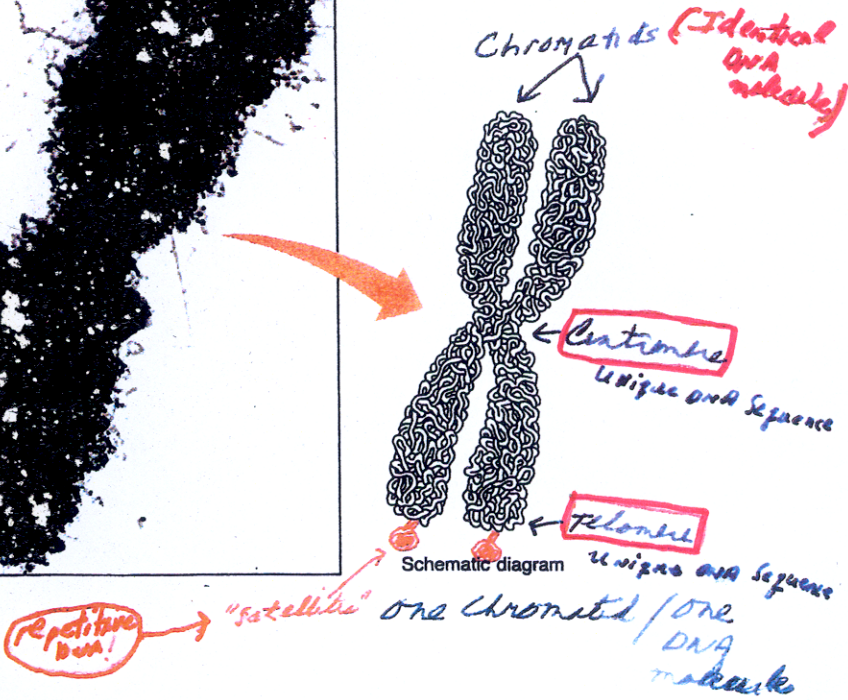 Chromatids (Identical
DNA
molecules)
Centromere
Unique DNA Sequence
Telomere
Unique DNA Sequence
Schematic diagram
repetitive
DNA!
"satellites"
one Chromatid / one
DNA
molecule